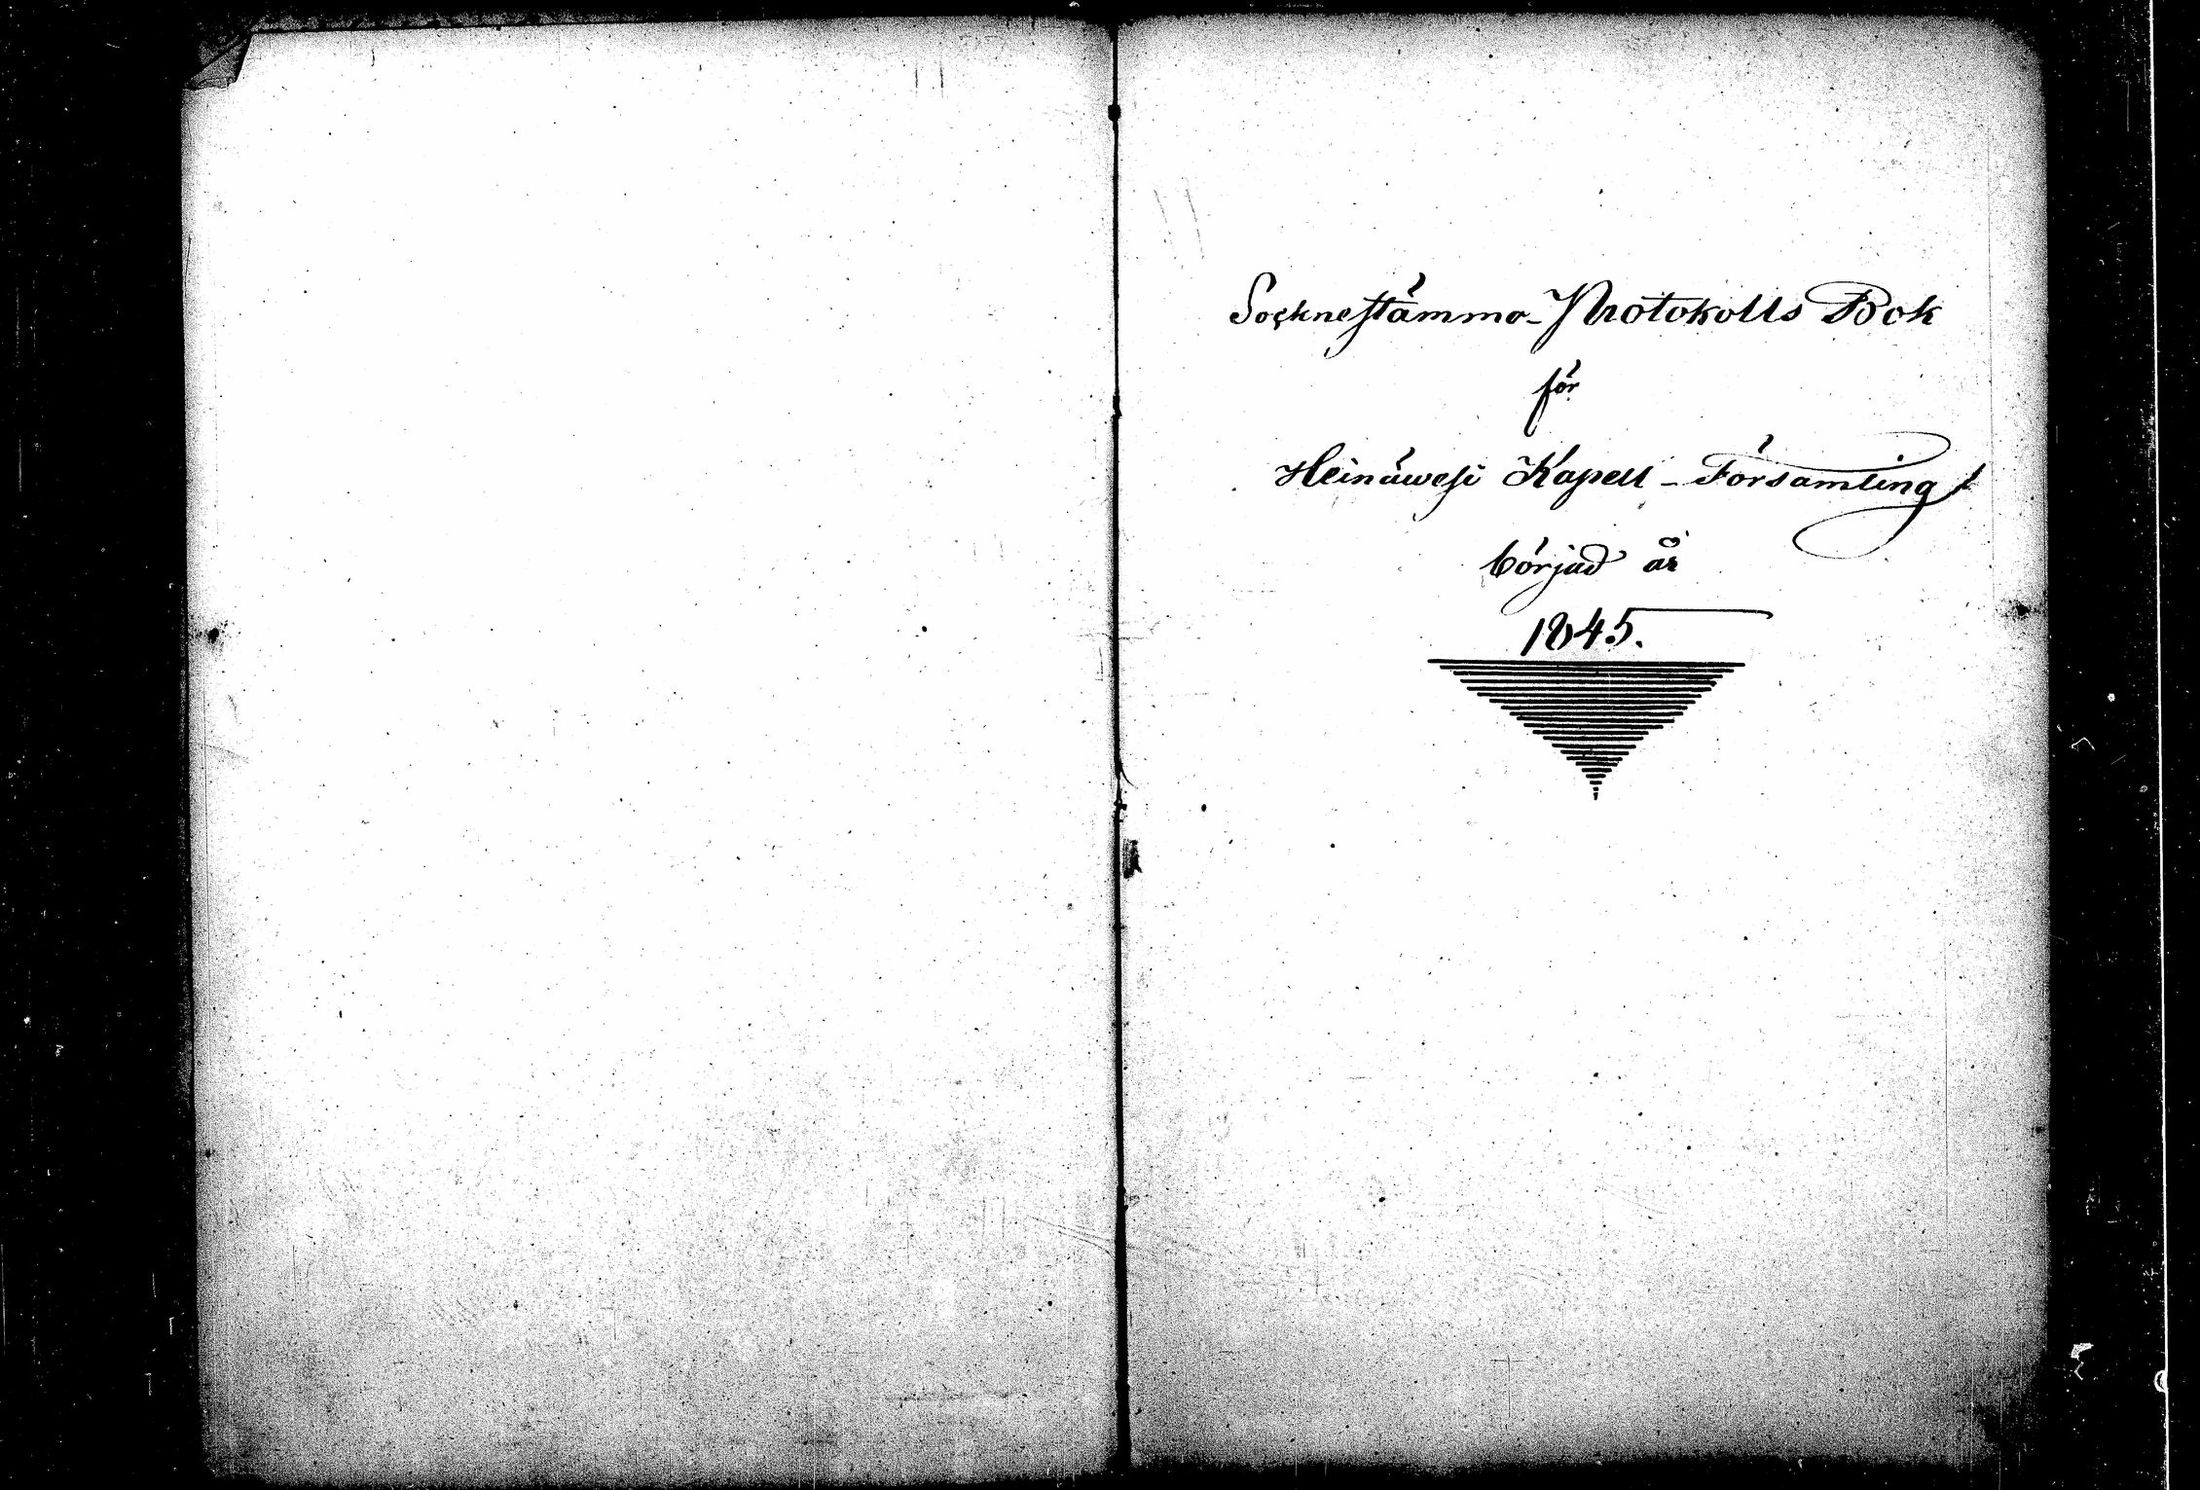 Socknestämmo-Protokolls Bok
för
Heinäwesi Kapell-Församling
börjad år
1845.